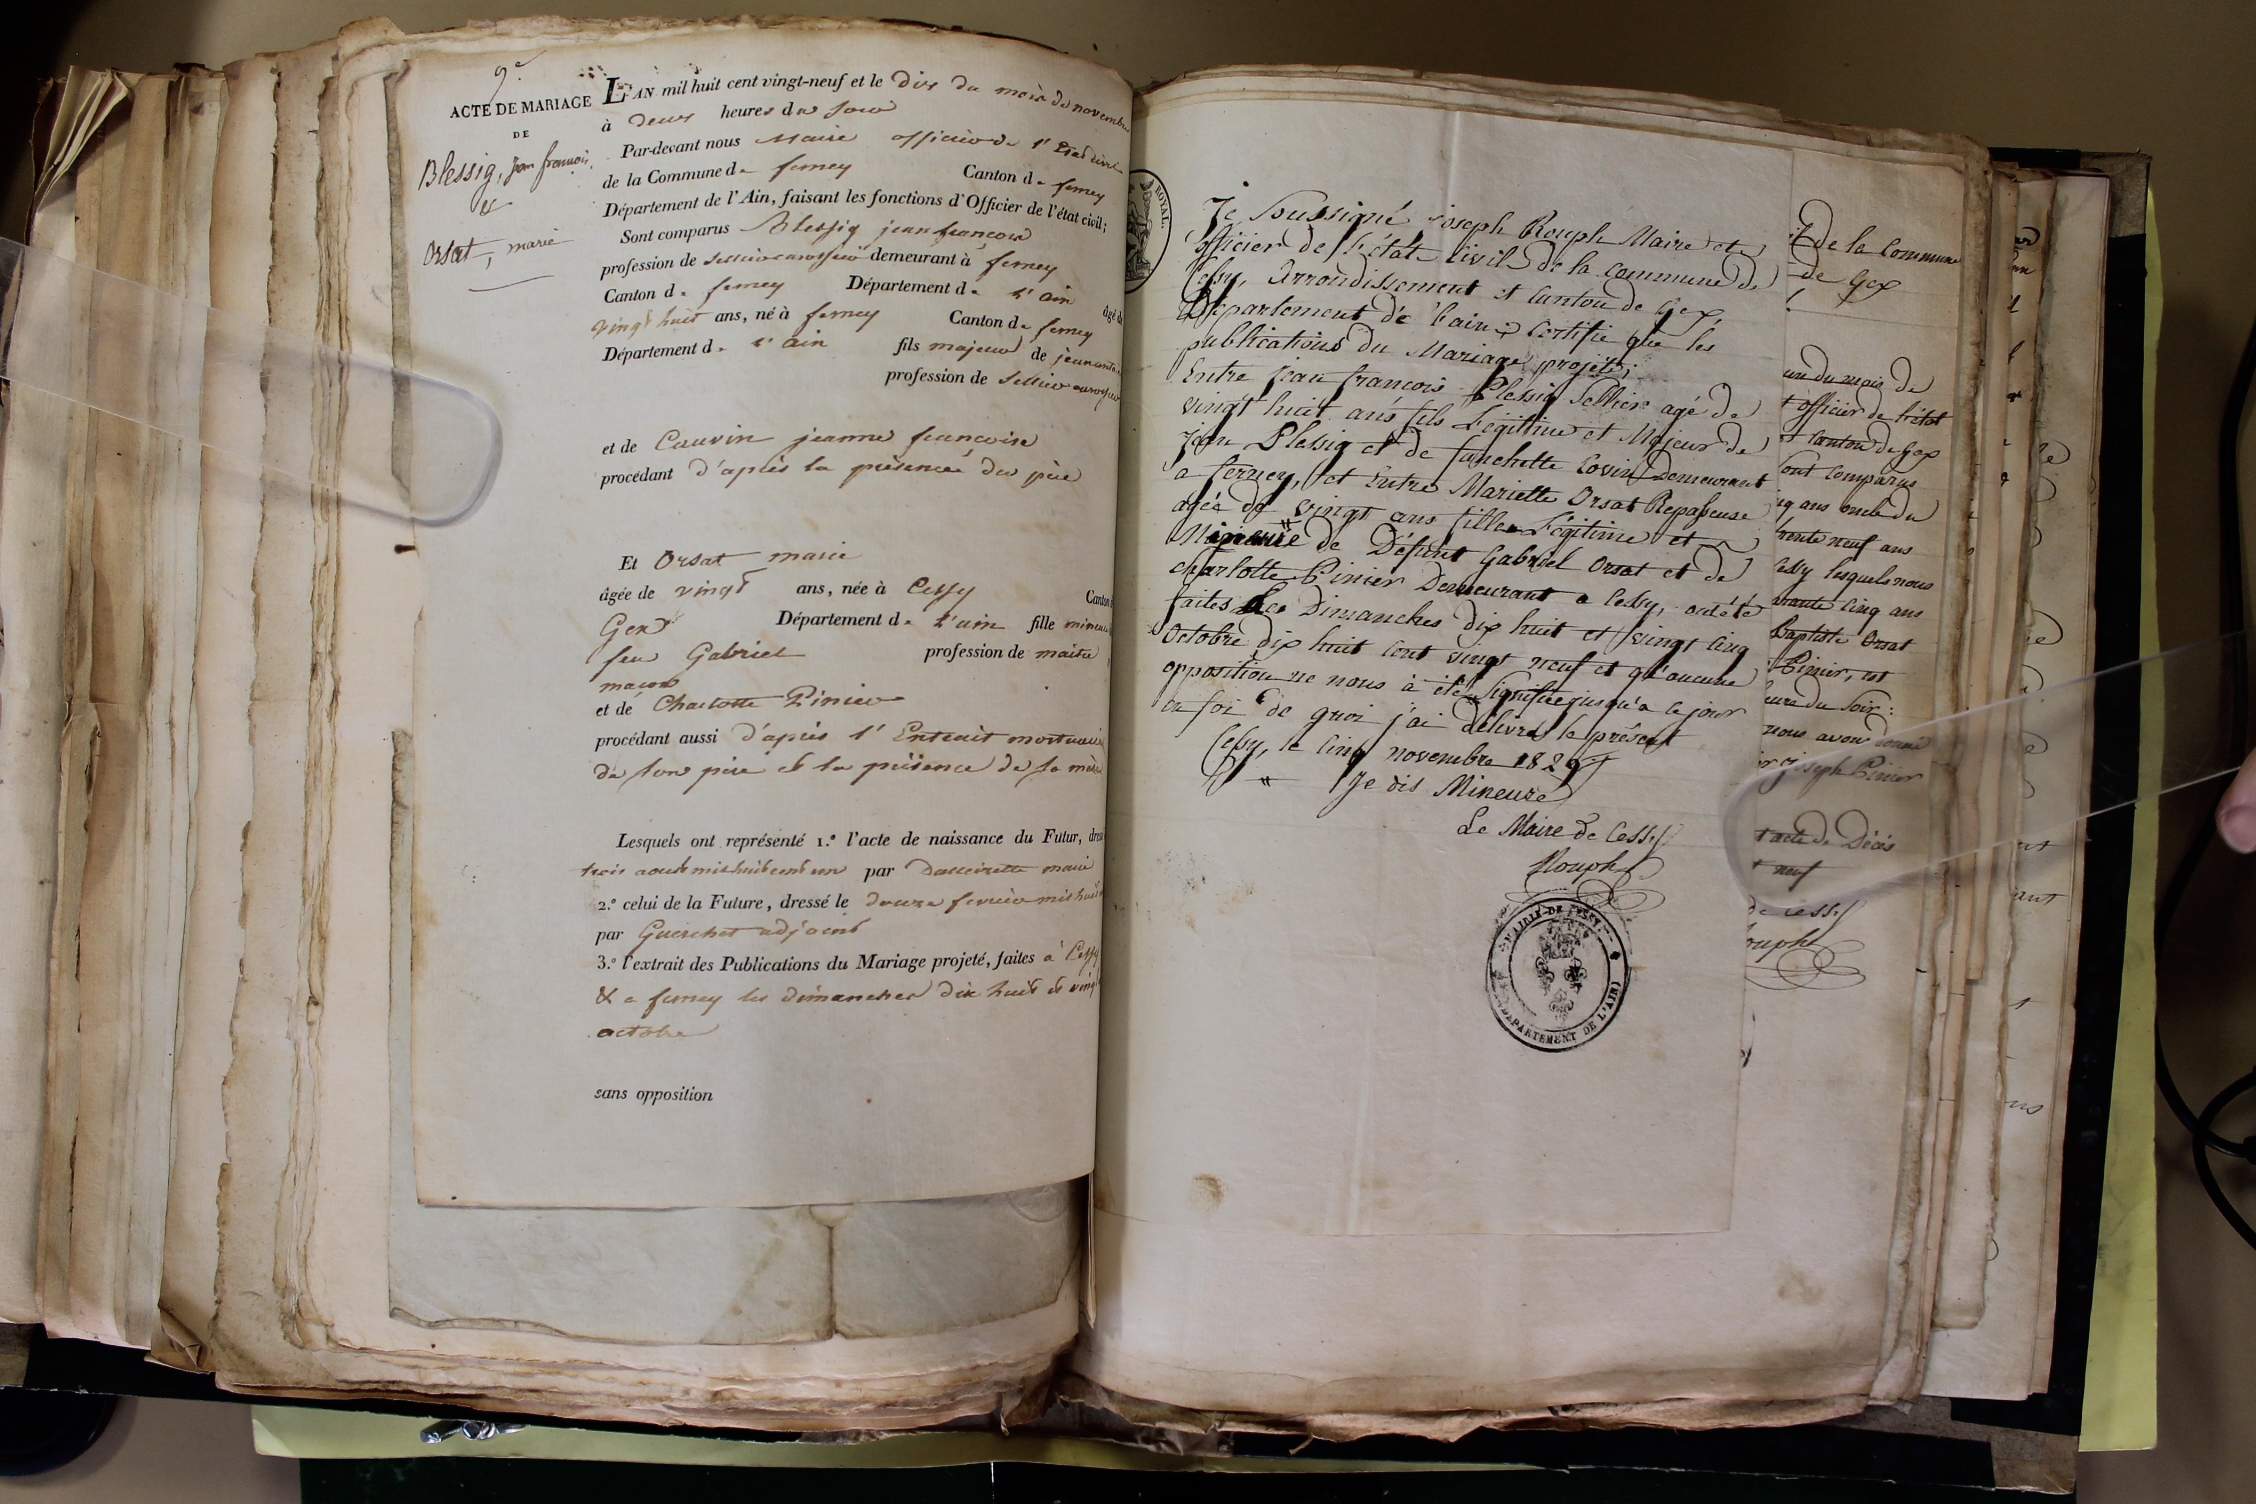 9e.
ACTE DE MARIAGE
DE
Blessig, jean françois
&
Orsat, marie
L'AN mil huit cent vingt-neuf et le dix du mois de novembre
à deux heures du soir
Par-devant nous Maire officier de l'Etat civil
de la Commune de ferney Canton de ferney
Département de l'Ain, faisant les fonctions d'Officier de l'état civil;
Sont comparus Blessig jean françois
profession de sellier carossier demeurant à ferney
Canton de ferney Département de l'ain âgé de
vingt huit ans, né à ferney Canton de ferney
Département de l'ain fils majeur de jean
profession de sellier carossier
et de Cauvin jeanne françoise
procédant d'après la présence du père
Et Orsat marie
âgée de vingt ans, née à Cessy Canton
Gex Département de l'ain fille mineure
feu Gabriel profession de maitre
maçon
et de Charlotte Pinier
procédant aussi d'après l'Extrait mortuaire
de son père et la présence de sa mère
Lesquels ont représenté 1.º l'acte de naissance du Futur, dressé
trois aout mil huit cent un par maire
2.º celui de la Future, dressé le douze fevrier mil huit
par Guerchet adjoint
3.º l'extrait des Publications du Mariage projeté, faites à Cessy
& a ferney les dimanches dix huit et vingt
octobre
sans opposition
ROYAL.
Je Soussigné Joseph Rouph Maire et
officier de l'état Civil de la commune de
Cessy, Arrondissement et Canton de Gex,
Département de l'ain; Certifie que les
publications du Mariage projeté;
Entre jean françois Plessig Sellier agé de
vingt huit ans fils Légitime et Majeur de
jean Plessig et de fanchette Covin Demeurant
a ferney, et Entre Mariette Orsat Repasseuse
agée de vingt ans fille Légitime et
de Défunt Gabriel Orsat et de
Charlotte Pinier Demeurant a Cessy, ont été
faites Les Dimanches dix huit et vingt cinq
Octobre dix huit cent vingt neuf et qu'aucune
opposition ne nous à été Signifiée jusqu'a ce jour
en foi de quoi j'ai délivré le présent
Cessy, le cinq novembre 1829
Je dis Mineure
Le Maire de Cessy
Rouph
MAIRIE DE CESSY
DÉPARTEMENT DE L'AIN
de la Commune
de Gex
un du mois de
officier de l'état
canton de Gex
sont comparus
ans oncle du
trente neuf ans
Cessy lesquels nous
cinq ans
Baptiste Orsat
Pinier, est
heure du Soir:
nous avons donné
Joseph Pinier
acte de Décès
neuf
de Cessy
Rouph